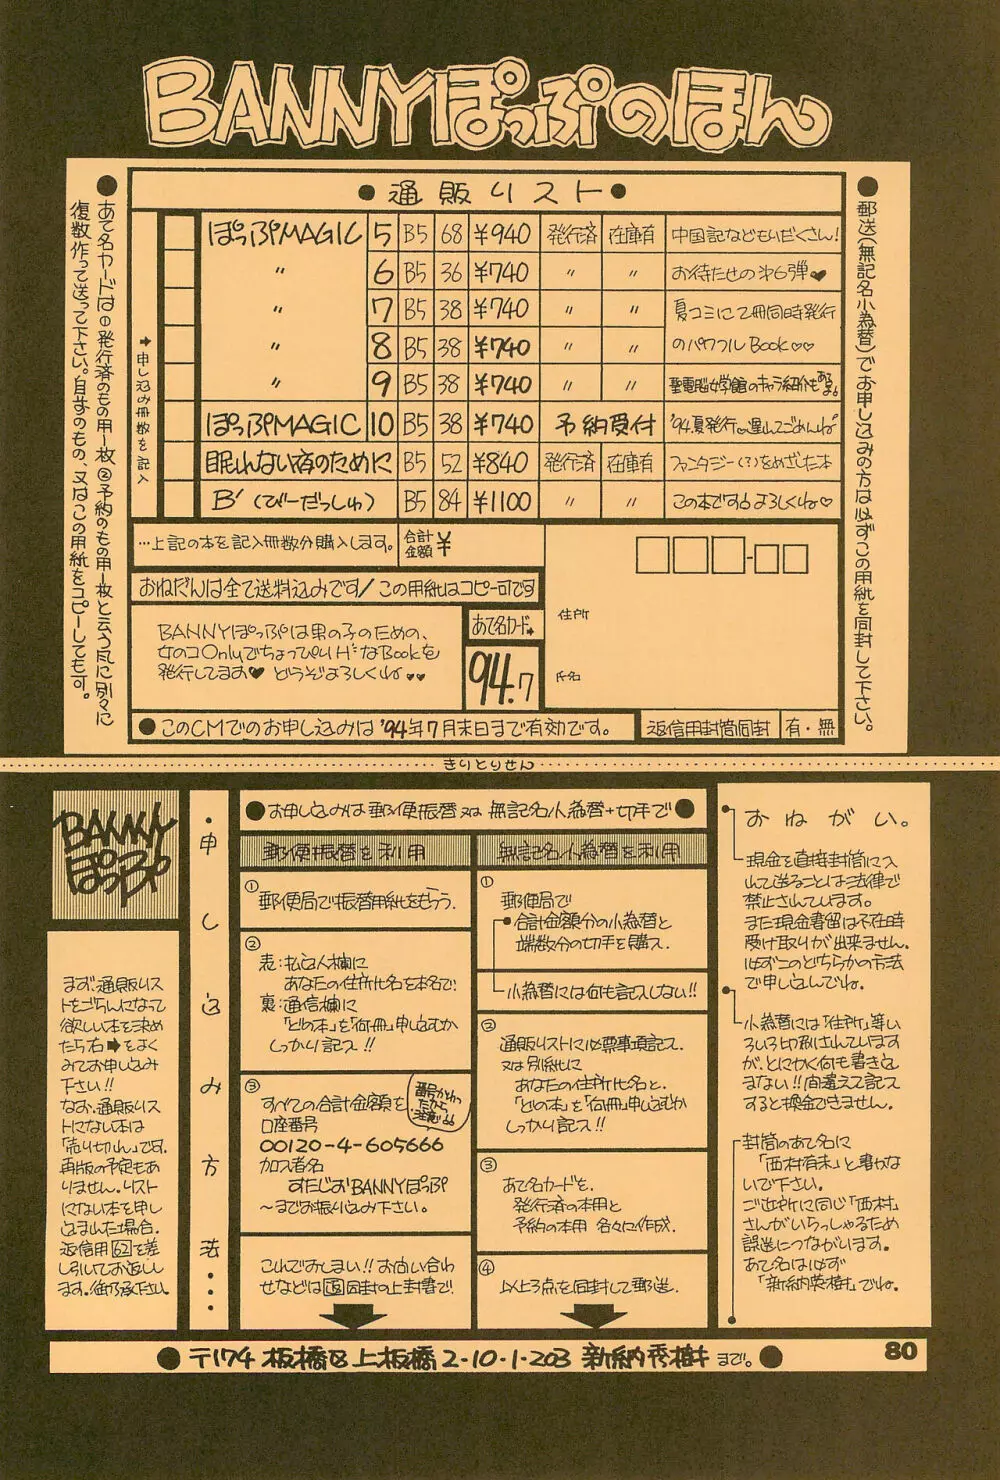 BANNYぽっぷのほん
●通販リスト●
●あて名カードは①発行済のもの用1枚②予約のもの用1枚と云う風に別々に
復数作って送って下さい。自分のもの、又はこの用紙をコピーしても可。
●郵送(無記名小為替)でお申し込みの方は必ずこの用紙を同封して下さい。
➡申し込み冊数を記入
ぽっぷMAGIC 5 B5 68 ¥940 発行済 在庫有 中国記などもりだくさん!
〃 6 B5 36 ¥740 〃 〃 お待たせの第6弾♥
〃 7 B5 38 ¥740 〃 〃 夏コミにて2冊同時発行
〃 8 B5 38 ¥740 〃 〃 のパワフルBook♡♡
〃 9 B5 38 ¥740 〃 〃 聖電脳女学館のキャラ紹介も
ぽっぷMAGIC 10 B5 38 ¥740 予約受付 '94夏発行 遅れてごめんね
眠れない夜のために B5 52 ¥840 発行済 在庫有 ファンタジー(?)をめざした本
B′(びーだっしゅ) B5 84 ¥1100 〃 〃 この本です。よろしくね♡
…上記の本を記入冊数分購入します。
合計金額 ¥
おねだんは全て送料込みです/この用紙はコピー可です
BANNYぽっぷは男の子のための、
女のコOnlyでちょっぴりHなBookを
発行してます♥どうぞよろしくね♥♥
あて名カード➡
94.7
住所
氏名
●このCMでのお申し込みは'94年7月末日まで有効です。
返信用封筒同封 有・無
きりとりせん
BANNYぽっぷ
まず、通販リス
トをごらんになって
欲しい本を決め
たら右➡をよく
みてお申し込み
下さい!!
なお、通販リス
トにない本は
「売り切れ」です。
再版の予定もあ
りません。リスト
にない本を申し
込まれた場合、
返信用62を差
し引いてお返しし
ます。御了承下さい。
・申し込み方法・・・
●お申し込みは郵便振替又は無記名小為替+切手で●
郵便振替を利用
①
郵便局で振替用紙をもらう.
②
表:払込人欄に
あなたの住所氏名を本名で:
裏:通信欄に
「どの本」を「何冊」申し込むか
しっかり記入!!
③
すべての合計金額を
口座番号
00120-4-605666
加入者名
すたじおBANNYぽっぷ
〜までお振り込み下さい。
番号かわったから注意!
これでおしまい!!お問い合わ
せなどは〒同封の上封書で.
無記名小為替を利用
①
郵便局で
●合計金額分の小為替と
端数分の切手を購入.
小為替には何も記入しない!!
②
通販リストに必要事項記入.
又は別紙に
あなたの住所氏名と、
「どの本」を「何冊」申し込むか
しっかり記入!!
③
あて名カードを、
発行済の本用と
予約の本用 各々に作成.
④
以上3点を同封して郵送.
おねがい。
現金を直接封筒に入
れて送ることは法律で
禁止されています。
また現金書留は不在時
受け取りが出来ません。
必ずこのどちらかの方法
で申し込んでね。
小為替には「住所」等い
ろいろ印刷されています
が、とにかく何も書き込
まない!!間違えて記入
すると換金できません。
封筒のあて名に
「西村有未」と書かな
いで下さい。
ご近所に同じ「西村」
さんがいらっしゃるため
誤送につながります。
あて名は必ず
「新納秀樹」でね。
●〒174 板橋区上板橋2-10-1-203 新納秀樹まで。●
80